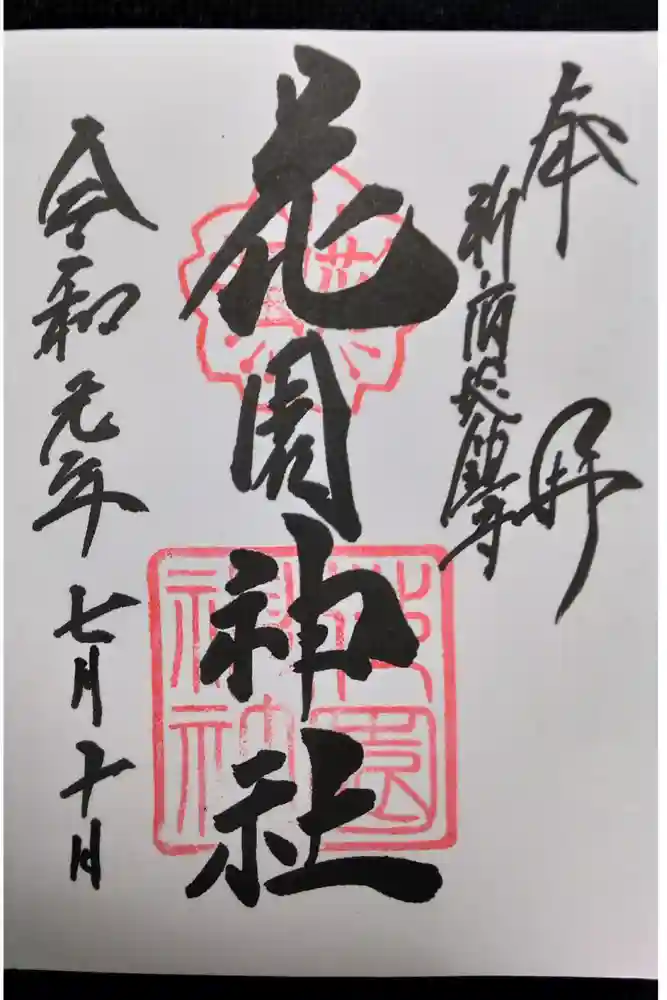 奉拝
新宿総鎮守
花園神社
令和元年七月十日
花園神社